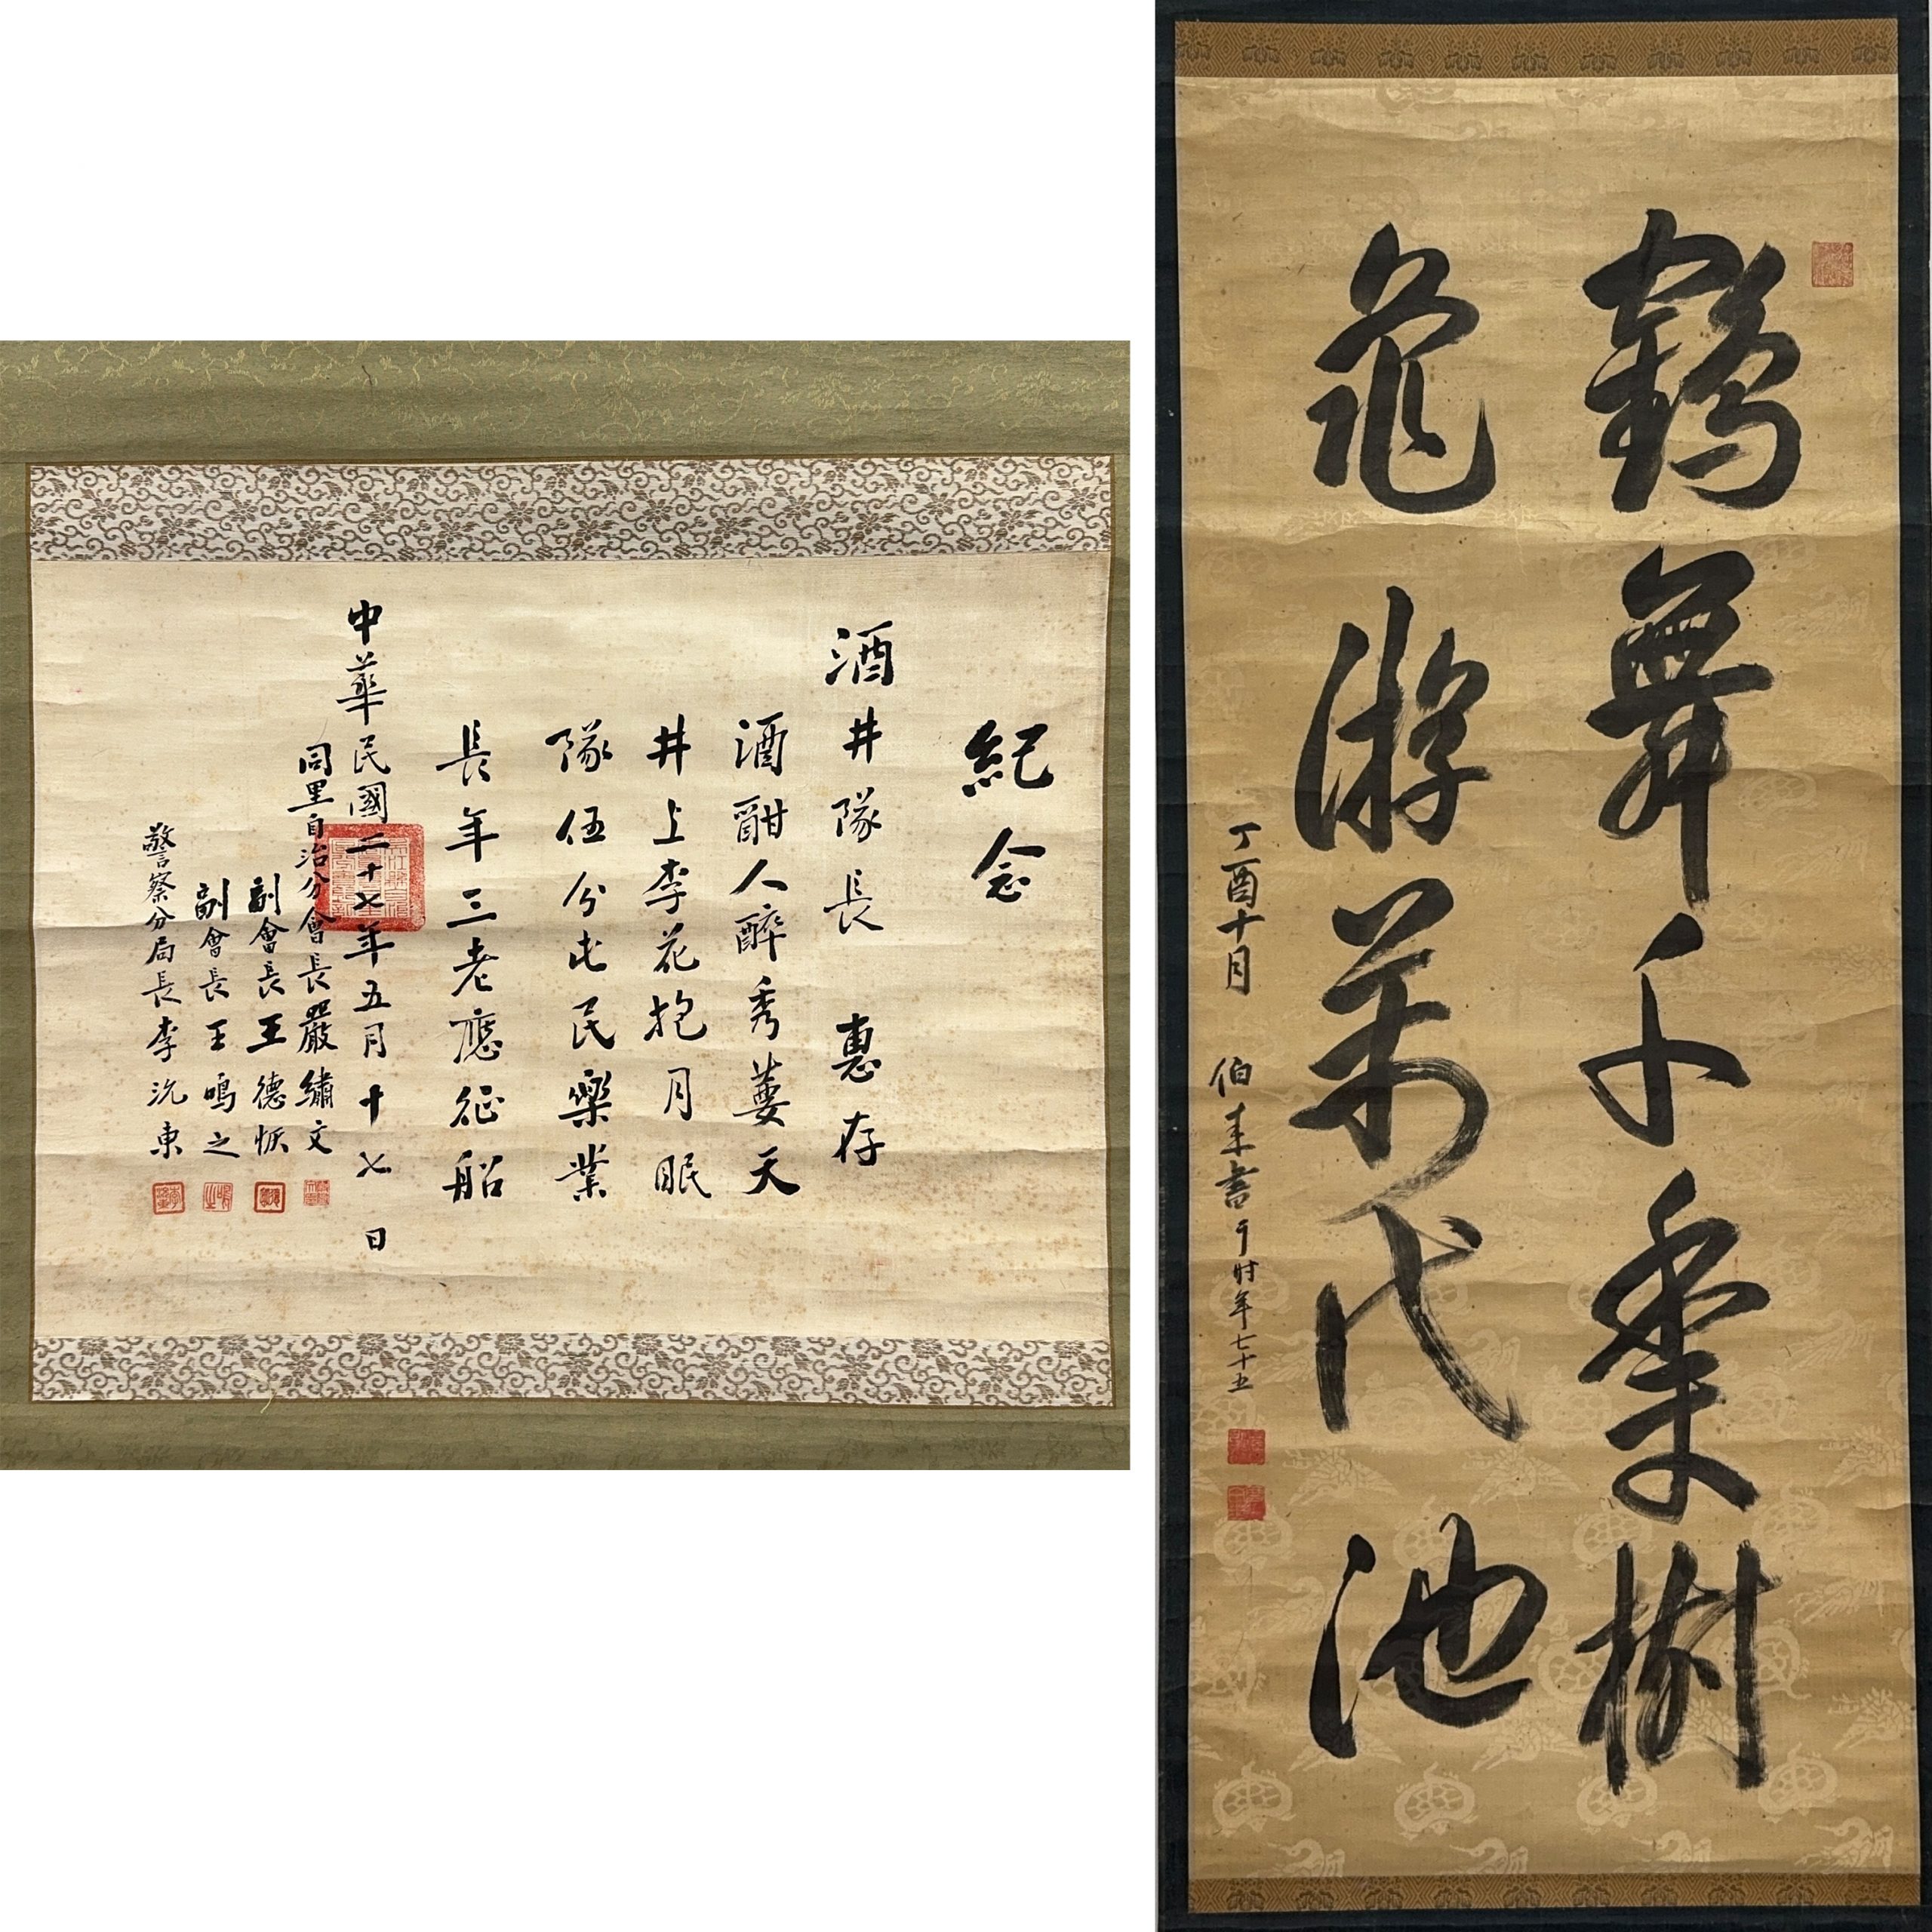 紀念
酒井隊長　惠存
酒酣人醉秀蔓天
井上李花抱月眠
隊伍分屯民樂業
長年三老應征船
中華民國二十七年五月十七日
同里自治分會長嚴繡文
副會長王德恢
副會長王鳴之
警察分局長李沆東
鶴舞千年樹
龜游萬代池
丁酉十月　伯圭書于時年七十五